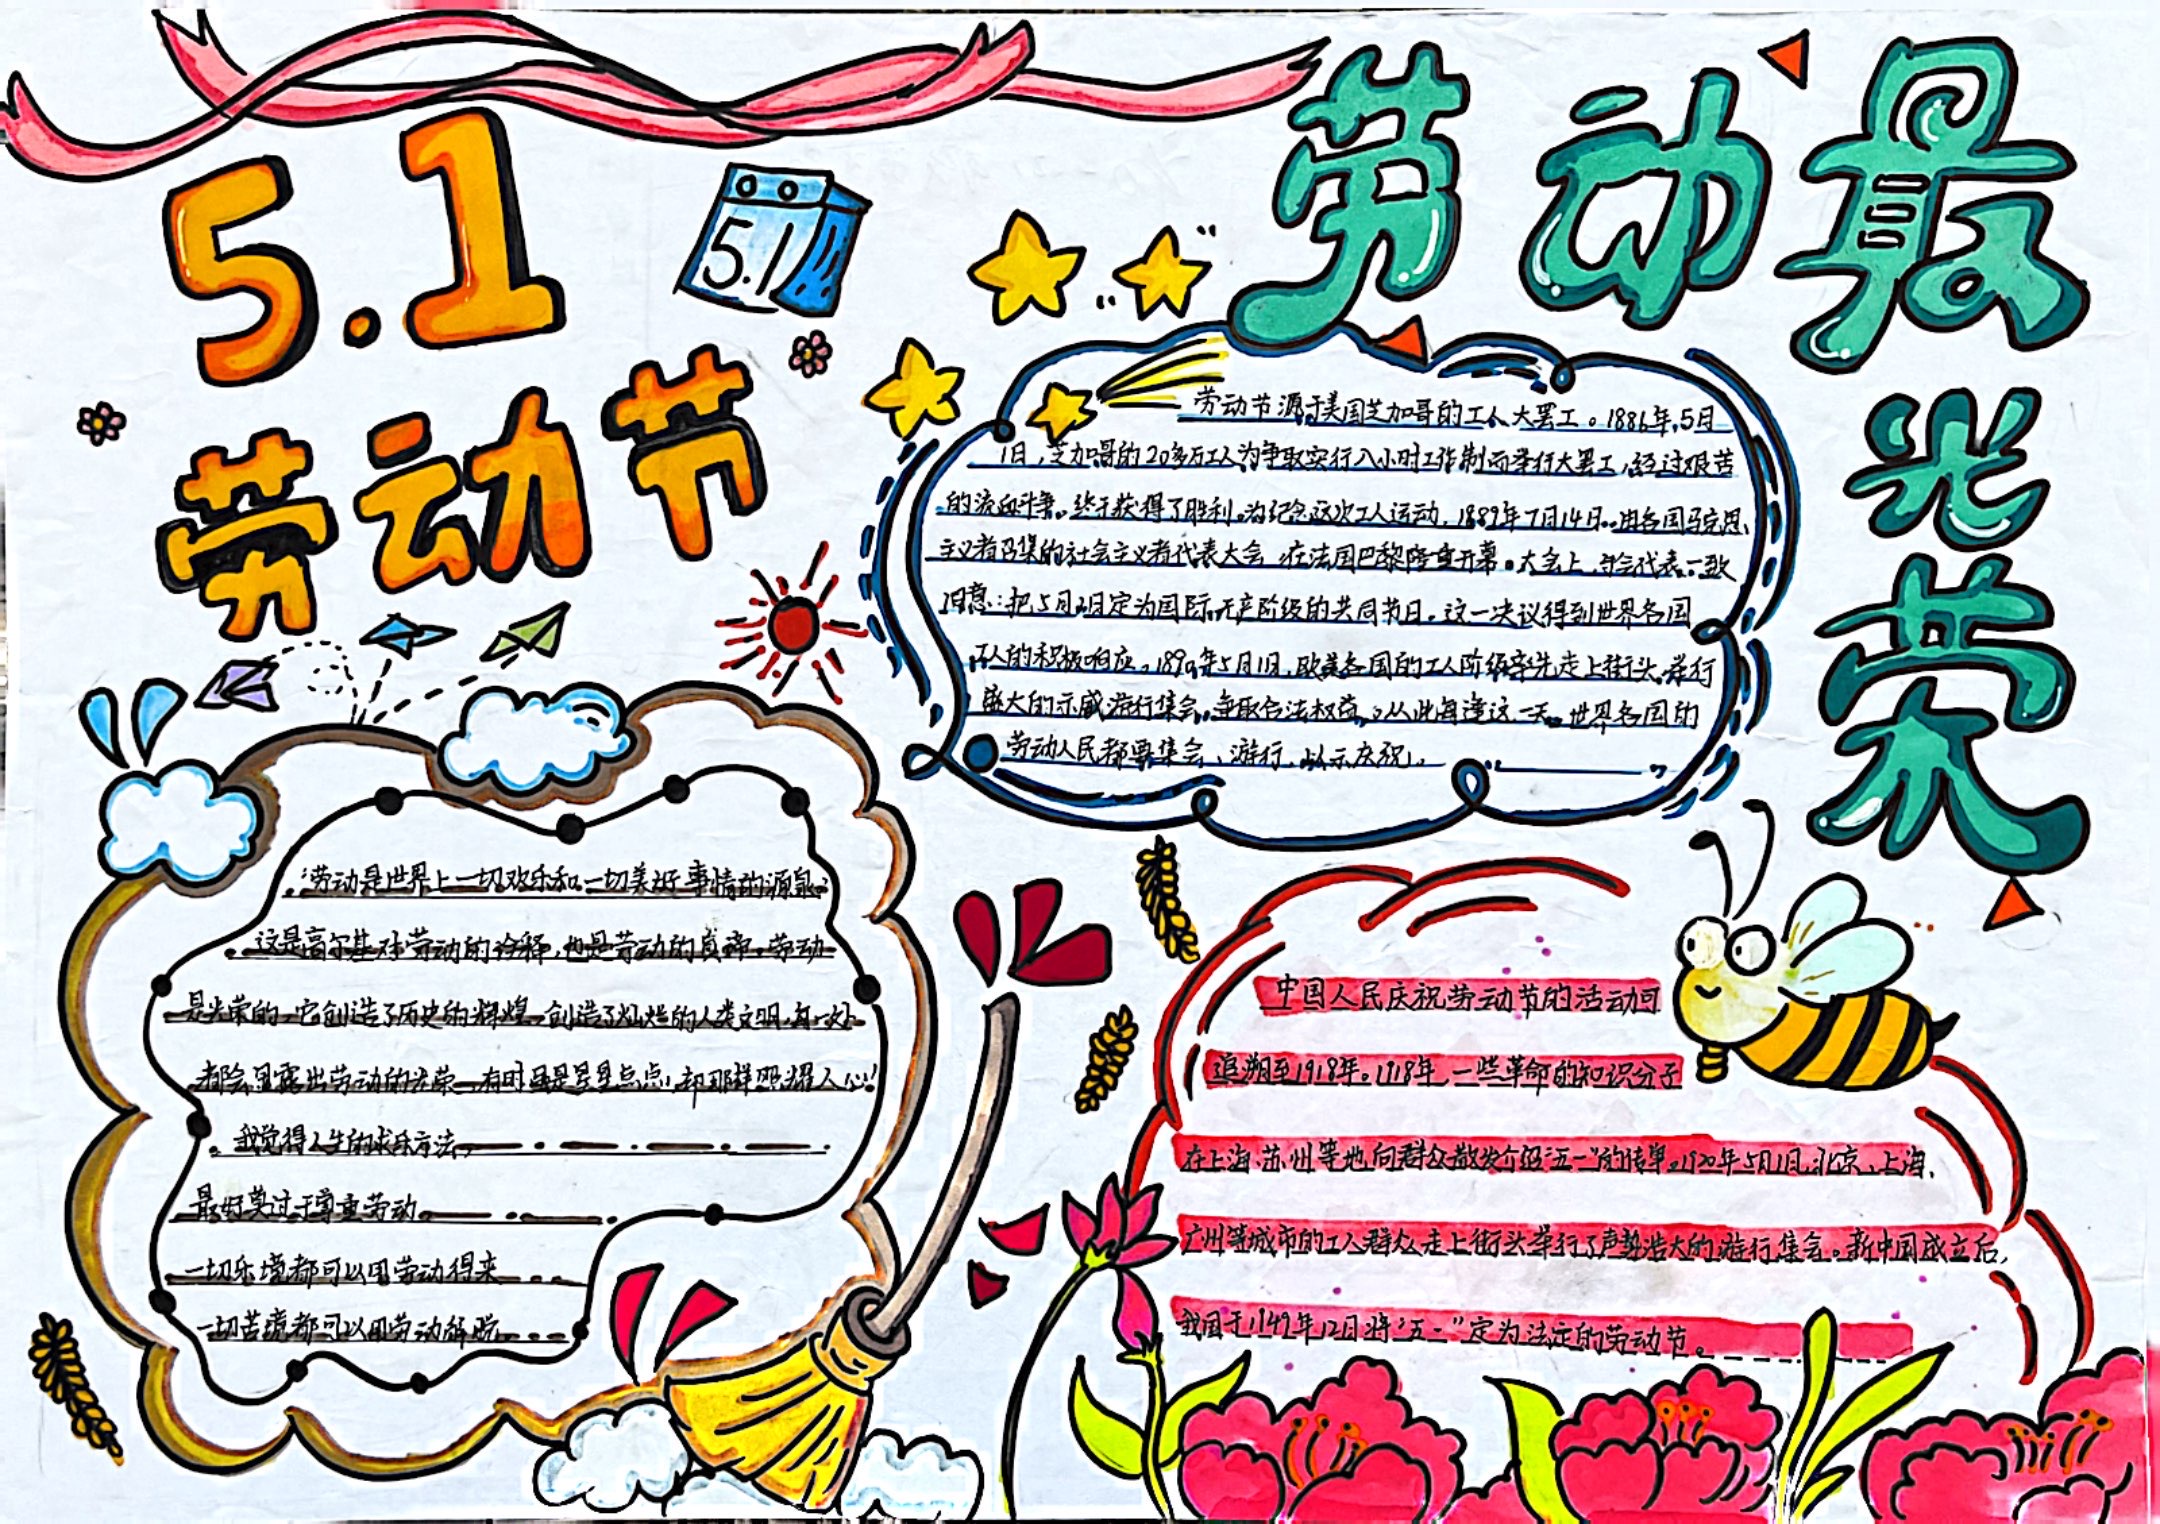 5.1
劳动节
5.1
劳动最
光荣
劳动节源于美国芝加哥的工人大罢工。1886年5月
1日,芝加哥的20多万工人为争取实行八小时工作制而举行大罢工,经过艰苦
的流血斗争。终于获得了胜利。为纪念这次工人运动,1889年7月14日。由各国马克思
主义者召集的社会主义者代表大会,在法国巴黎隆重开幕。大会上,与会代表一致
同意:把5月1日定为国际无产阶级的共同节日。这一决议得到世界各国
工人的积极响应。1890年5月1日,欧美各国的工人阶级率先走上街头,举行
盛大的示威游行集会。争取合法权益。从此每逢这一天。世界各国的
劳动人民都要集会、游行,以示庆祝。
“劳动是世界上一切欢乐和一切美好事情的源泉”
这是高尔基对劳动的诠释,也是劳动的真谛。劳动
是光荣的,它创造了历史的辉煌,创造了灿烂的人类文明,每一处
都会显露出劳动的光荣,有时虽是星星点点,却那样照耀人心!
我觉得人生的求乐方法,
最好莫过于尊重劳动。
一切乐境都可以用劳动得来
一切苦境都可以用劳动解脱
中国人民庆祝劳动节的活动可
追溯至1918年。1918年,一些革命的知识分子
在上海、苏州等地向群众散发介绍“五一”的传单。1920年5月1日,北京、上海、
广州等城市的工人群众走上街头举行了声势浩大的游行集会。新中国成立后,
我国于1149年12日将“五一”定为法定的劳动节。